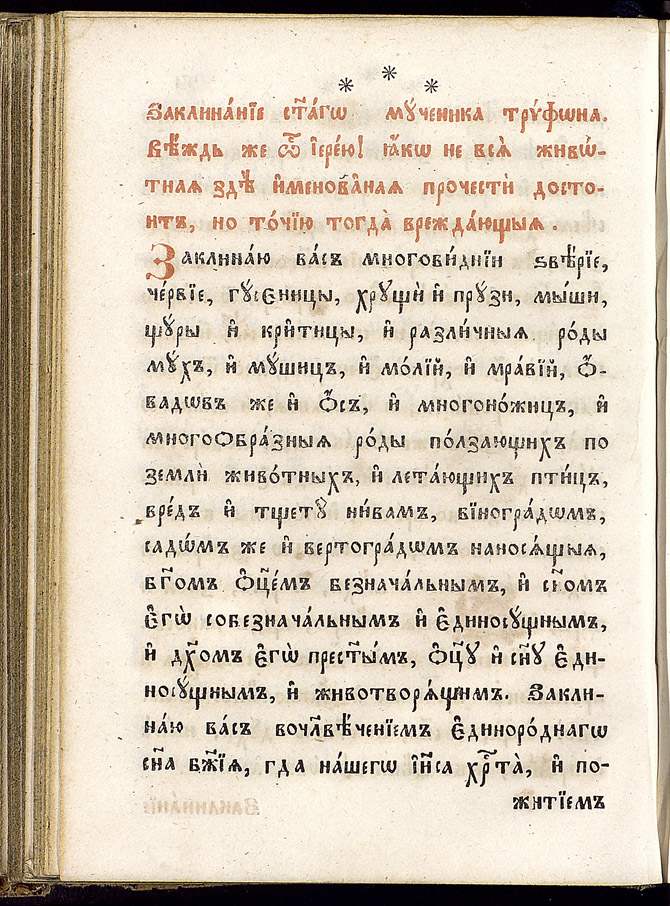 * * *
Заклина́нїе ст҃а́гѡ мꙋ́ченика трѵ́фѡна.
Вѣ́ждь же ѽ і҆ере́ю! ꙗ҆́кѡ не всѧ̑ живѡ́-
тнаѧ здѣ̀ и҆менова́наѧ прочестѝ досто-
итъ, но то́чїю тогда̀ врежда́ющыѧ.
Заклина́ю ва́съ многови́днїи ѕвѣ́рїе,
че́рвїе, гꙋ́сєницы, хрꙋщѝ и҆ прꙋ́зи, мы́ши,
щꙋ́ры и҆ кри́тицы, и҆ разли́чныѧ ро́ды
мꙋ́хъ, и҆ мꙋ́шицъ, и҆ мо́лїй, и҆ мра́вїй, Ѻ҆́-
вадѡвъ же и҆ Ѻ҆́съ, и҆ многоно́жицъ, и҆
многоѻбра́зныѧ ро́ды по́лзающихъ по
землѝ живо́тныхъ, и҆ лета́ющихъ пти́цъ,
вре́дъ и҆ тщетꙋ̀ ни́вамъ, вїногра́дѡмъ,
садѡ́мъ же и҆ вертогра́дѡмъ нанося́щыѧ,
бг҃омъ Ѻ҆ц҃е́мъ безнача́льнымъ, и҆ сн҃омъ
Є҆гѡ̀ собезнача́льнымъ и҆ Є҆диносꙋ́щнымъ,
и҆ дх҃омъ Є҆гѡ̀ прест҃ы́мъ, Ѻ҆ц҃ꙋ̀ и҆ сн҃ꙋ Є҆ди-
носꙋ́щнымъ, и҆ животворѧ́щимъ. Закли-
на́ю ва́съ воч҃лвѣ́ченїемъ Є҆диноро́днагѡ
сн҃а бж҃їѧ, гд҃а на́шегѡ і҆и҃са хрⷭ҇та̀, и҆ по-
житїемъ